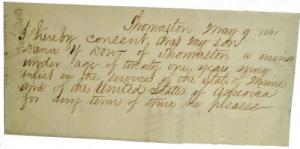 Thomaston May 9 1861
I hereby consent, that my son
Dana Y Dow of Thomaston a minor
under age of twenty one years may
enlist in the service of the State of Maine
and of the United States of America
for any term of time he pleases